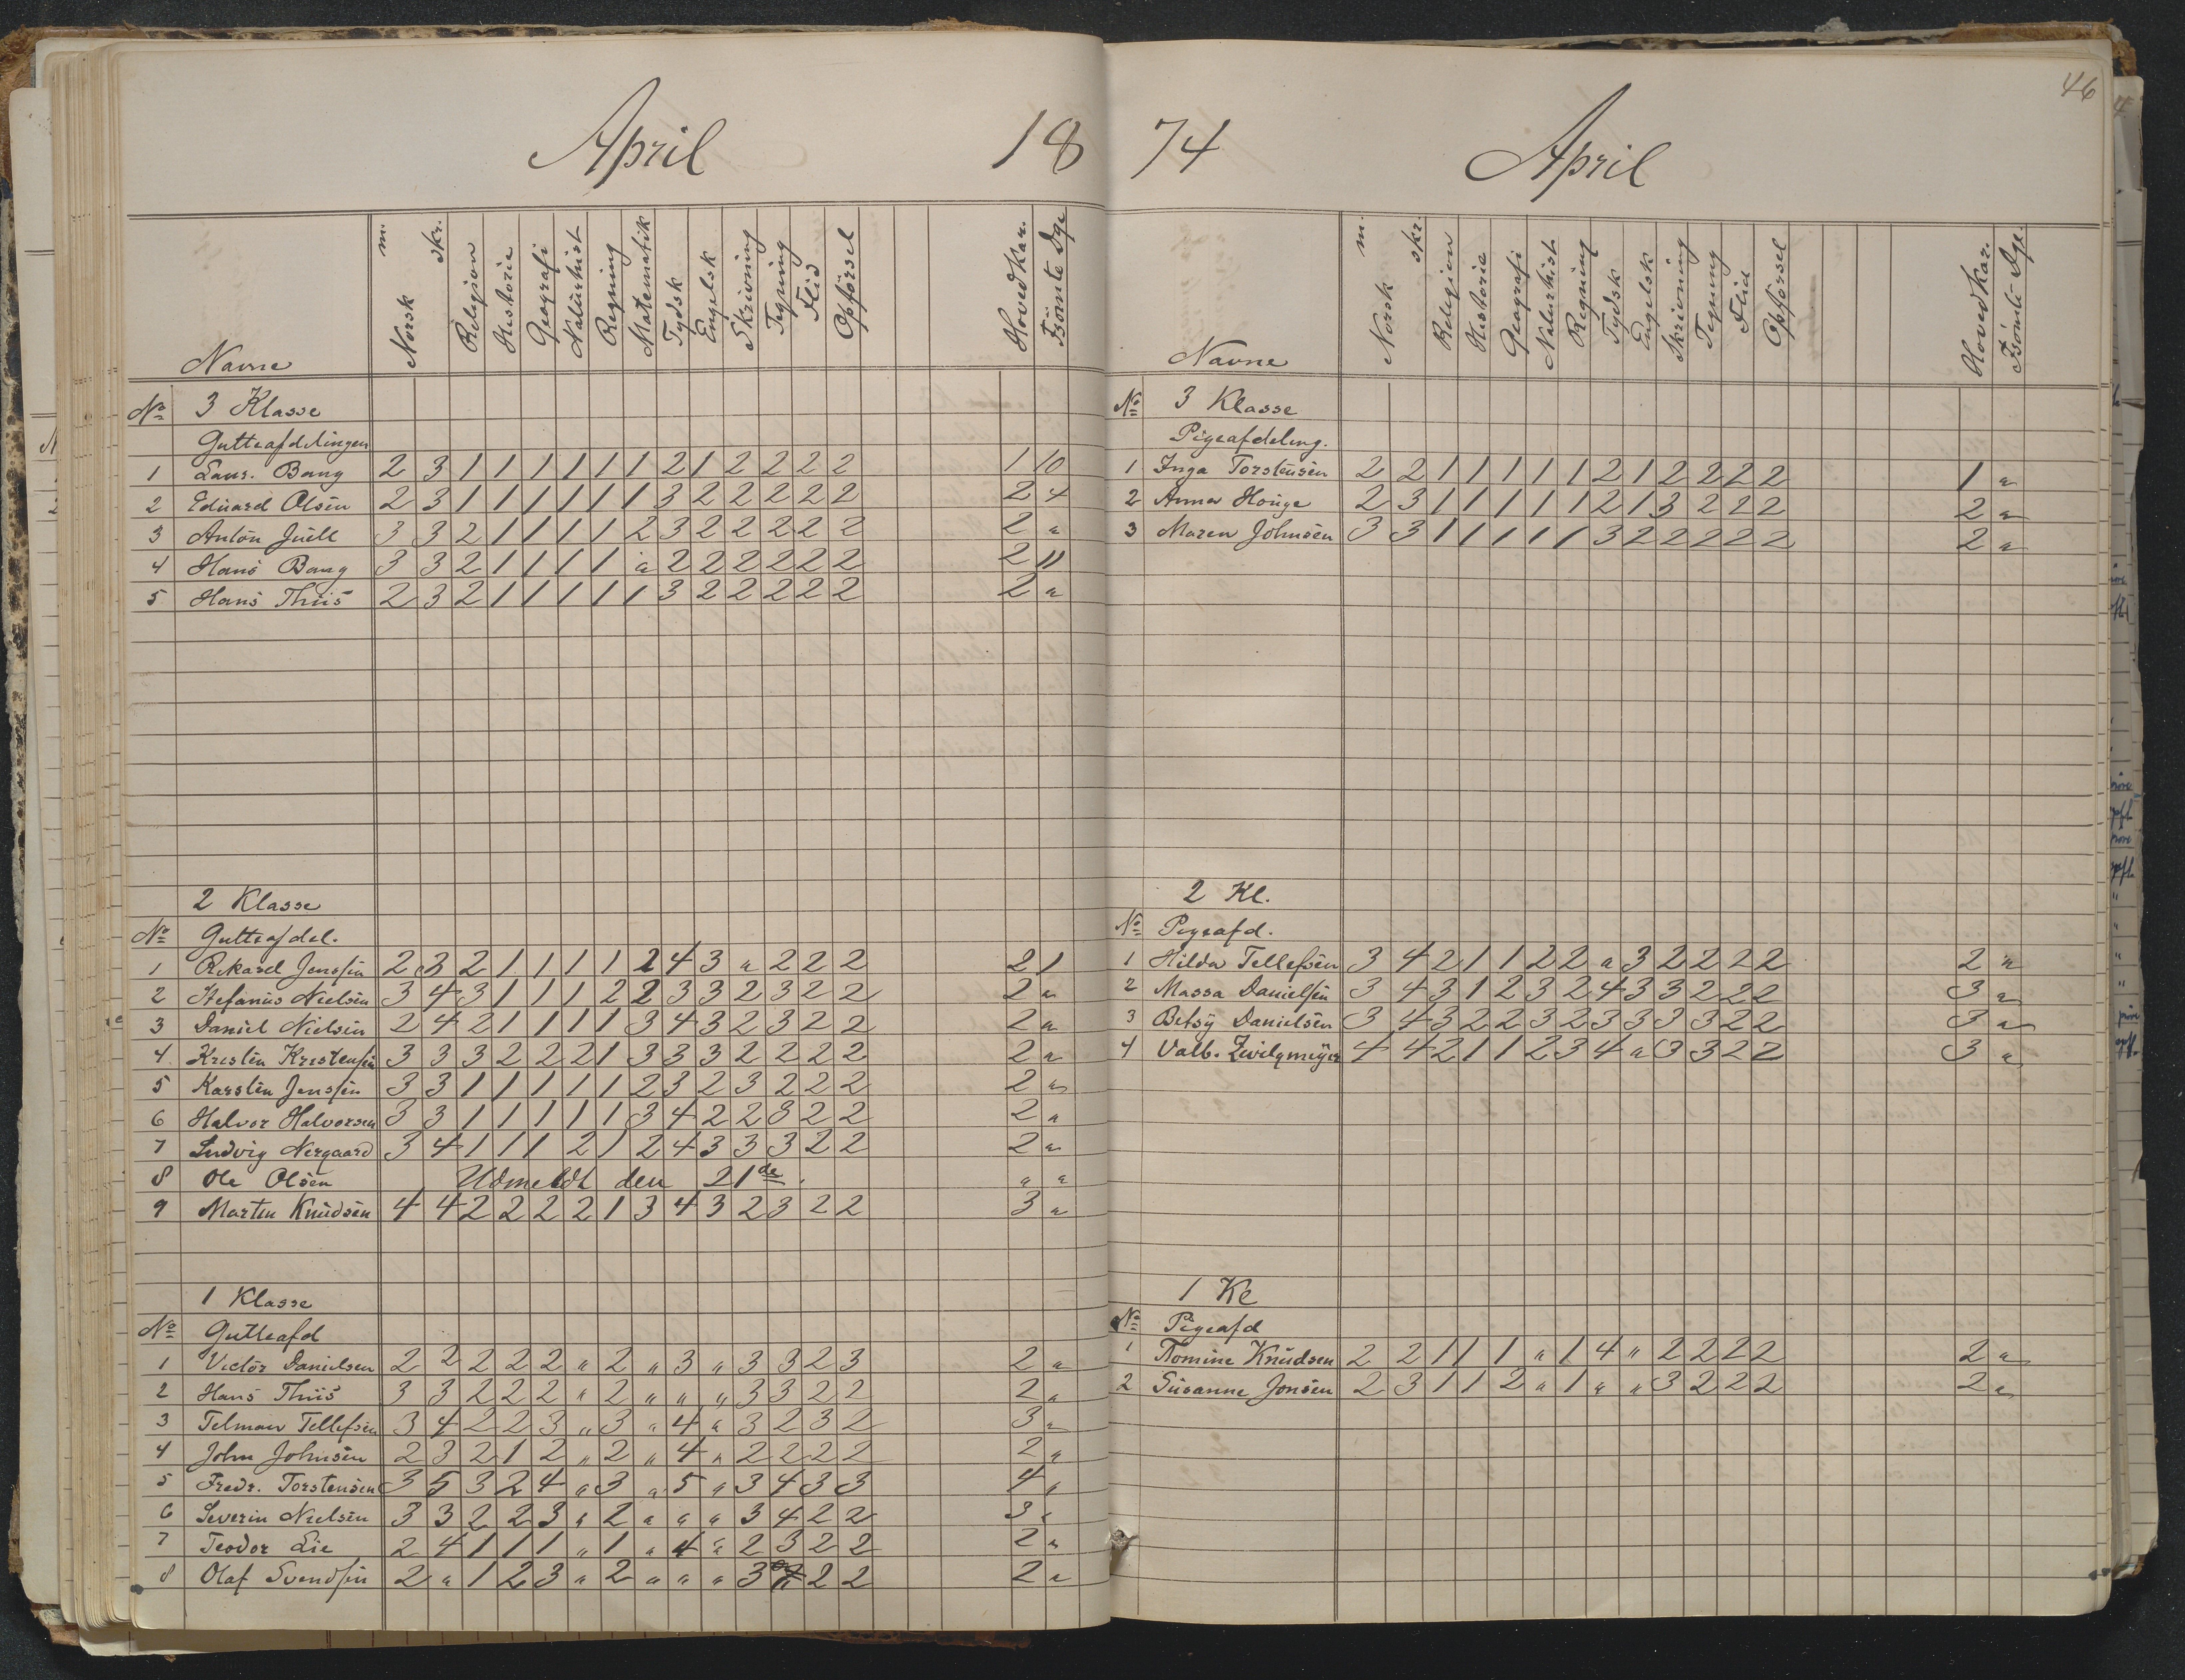 46
April 18
74 April
Navne Norsk m. skr. Religion Historie Geografi Naturhist Regning Matematik Tydsk Engelsk Skrivning Tegning Flid Opførsel Hovedkar. Dge
№ 3 Klasse
Gutteafdelingen
1 Laur. Bang 2 3 1 1 1 1 1 1 2 1 2 2 2 2 1 10
2 Eduard Olsen 2 3 1 1 1 1 1 1 3 2 2 2 2 2 2 4
3 Anton Juell 3 3 2 1 1 1 1 2 3 2 2 2 2 2 2 "
4 Hans Bang 3 3 2 1 1 1 1 " 2 2 2 2 2 2 2 11
5 Hans Thiis 2 3 2 1 1 1 1 1 3 2 2 2 2 2 2 "
2 Klasse
№ Gutteafdel.
1 Rikard Jenssen 2 3 2 1 1 1 1 2 4 3 " 2 2 2 2 1
2 Stefanus Nielsen 3 4 3 1 1 1 2 2 3 3 2 3 2 2 2 "
3 Daniel Nielsen 2 4 2 1 1 1 1 3 4 3 2 3 2 2 2 "
4 Kristen Kristensen 3 3 3 2 2 2 1 3 3 3 2 2 2 2 2 "
5 Karsten Jenssen 3 3 1 1 1 1 1 2 3 2 3 2 2 2 2 "
6 Halvor Halvorsen 3 3 1 1 1 1 1 3 4 2 2 3 2 2 2 "
7 Ludvig Nergaard 3 4 1 1 1 2 1 2 4 3 3 3 2 2 2 "
8 Ole Olsen Udmeldt den 21de. " "
9 Martin Knudsen 4 4 2 2 2 2 1 3 4 3 2 3 2 2 3 "
1 Klasse
№ Gutteafd
1 Victor Danielsen 2 2 2 2 2 " 2 " 3 " 3 3 2 3 2 "
2 Hans Thiis 3 3 2 2 2 " 2 " " " 3 3 2 2 2 "
3 Telman Tellefsen 3 4 2 2 3 " 3 " 4 " 3 2 3 2 3 "
4 John Johnsen 2 3 2 1 2 " 2 " 4 " 2 2 2 2 2 "
5 Fredr. Torstensen 3 5 3 2 4 " 3 " 5 " 3 4 3 3 4 "
6 Severin Nielsen 3 3 2 2 3 " 2 " " " 3 4 2 2 3 "
7 Teodor Lie 2 4 1 1 1 " 1 " 4 " 2 3 2 2 2 "
8 Olaf Svendsen 2 " 1 2 3 " 2 " " " 3 2 2 2 "
Navne Norsk m. skr. Religion Historie Geografi Naturhist Regning Tydsk Engelsk Skrivning Tegning Flid Opførsel Hovedkar. Dge.
№ 3 Klasse
Pigeafdeling.
1 Inga Torstensen 2 2 1 1 1 1 1 2 1 2 2 2 2 1 "
2 Anna Houge 2 3 1 1 1 1 1 2 1 3 2 2 2 2 "
3 Maren Johnsen 3 3 1 1 1 1 1 3 2 2 2 2 2 2 "
2 Kl.
№ Pigeafd.
1 Hilda Tellefsen 3 4 2 1 1 2 2 " 3 2 2 2 2 2 "
2 Massa Danielsen 3 4 3 1 2 3 2 4 3 3 2 2 2 3 "
3 Betsy Danielsen 3 4 3 2 2 3 2 3 3 3 3 2 2 3 "
4 Valb. Zwilgmeyer 4 4 2 1 1 2 3 4 " 3 3 2 2 3 "
1 Kl
№ Pigeafd
1 Tomine Knudsen 2 2 1 1 1 " 1 4 " 2 2 2 2 2 "
2 Susanne Jonsen 2 3 1 1 2 " 1 " " 3 2 2 2 2 "